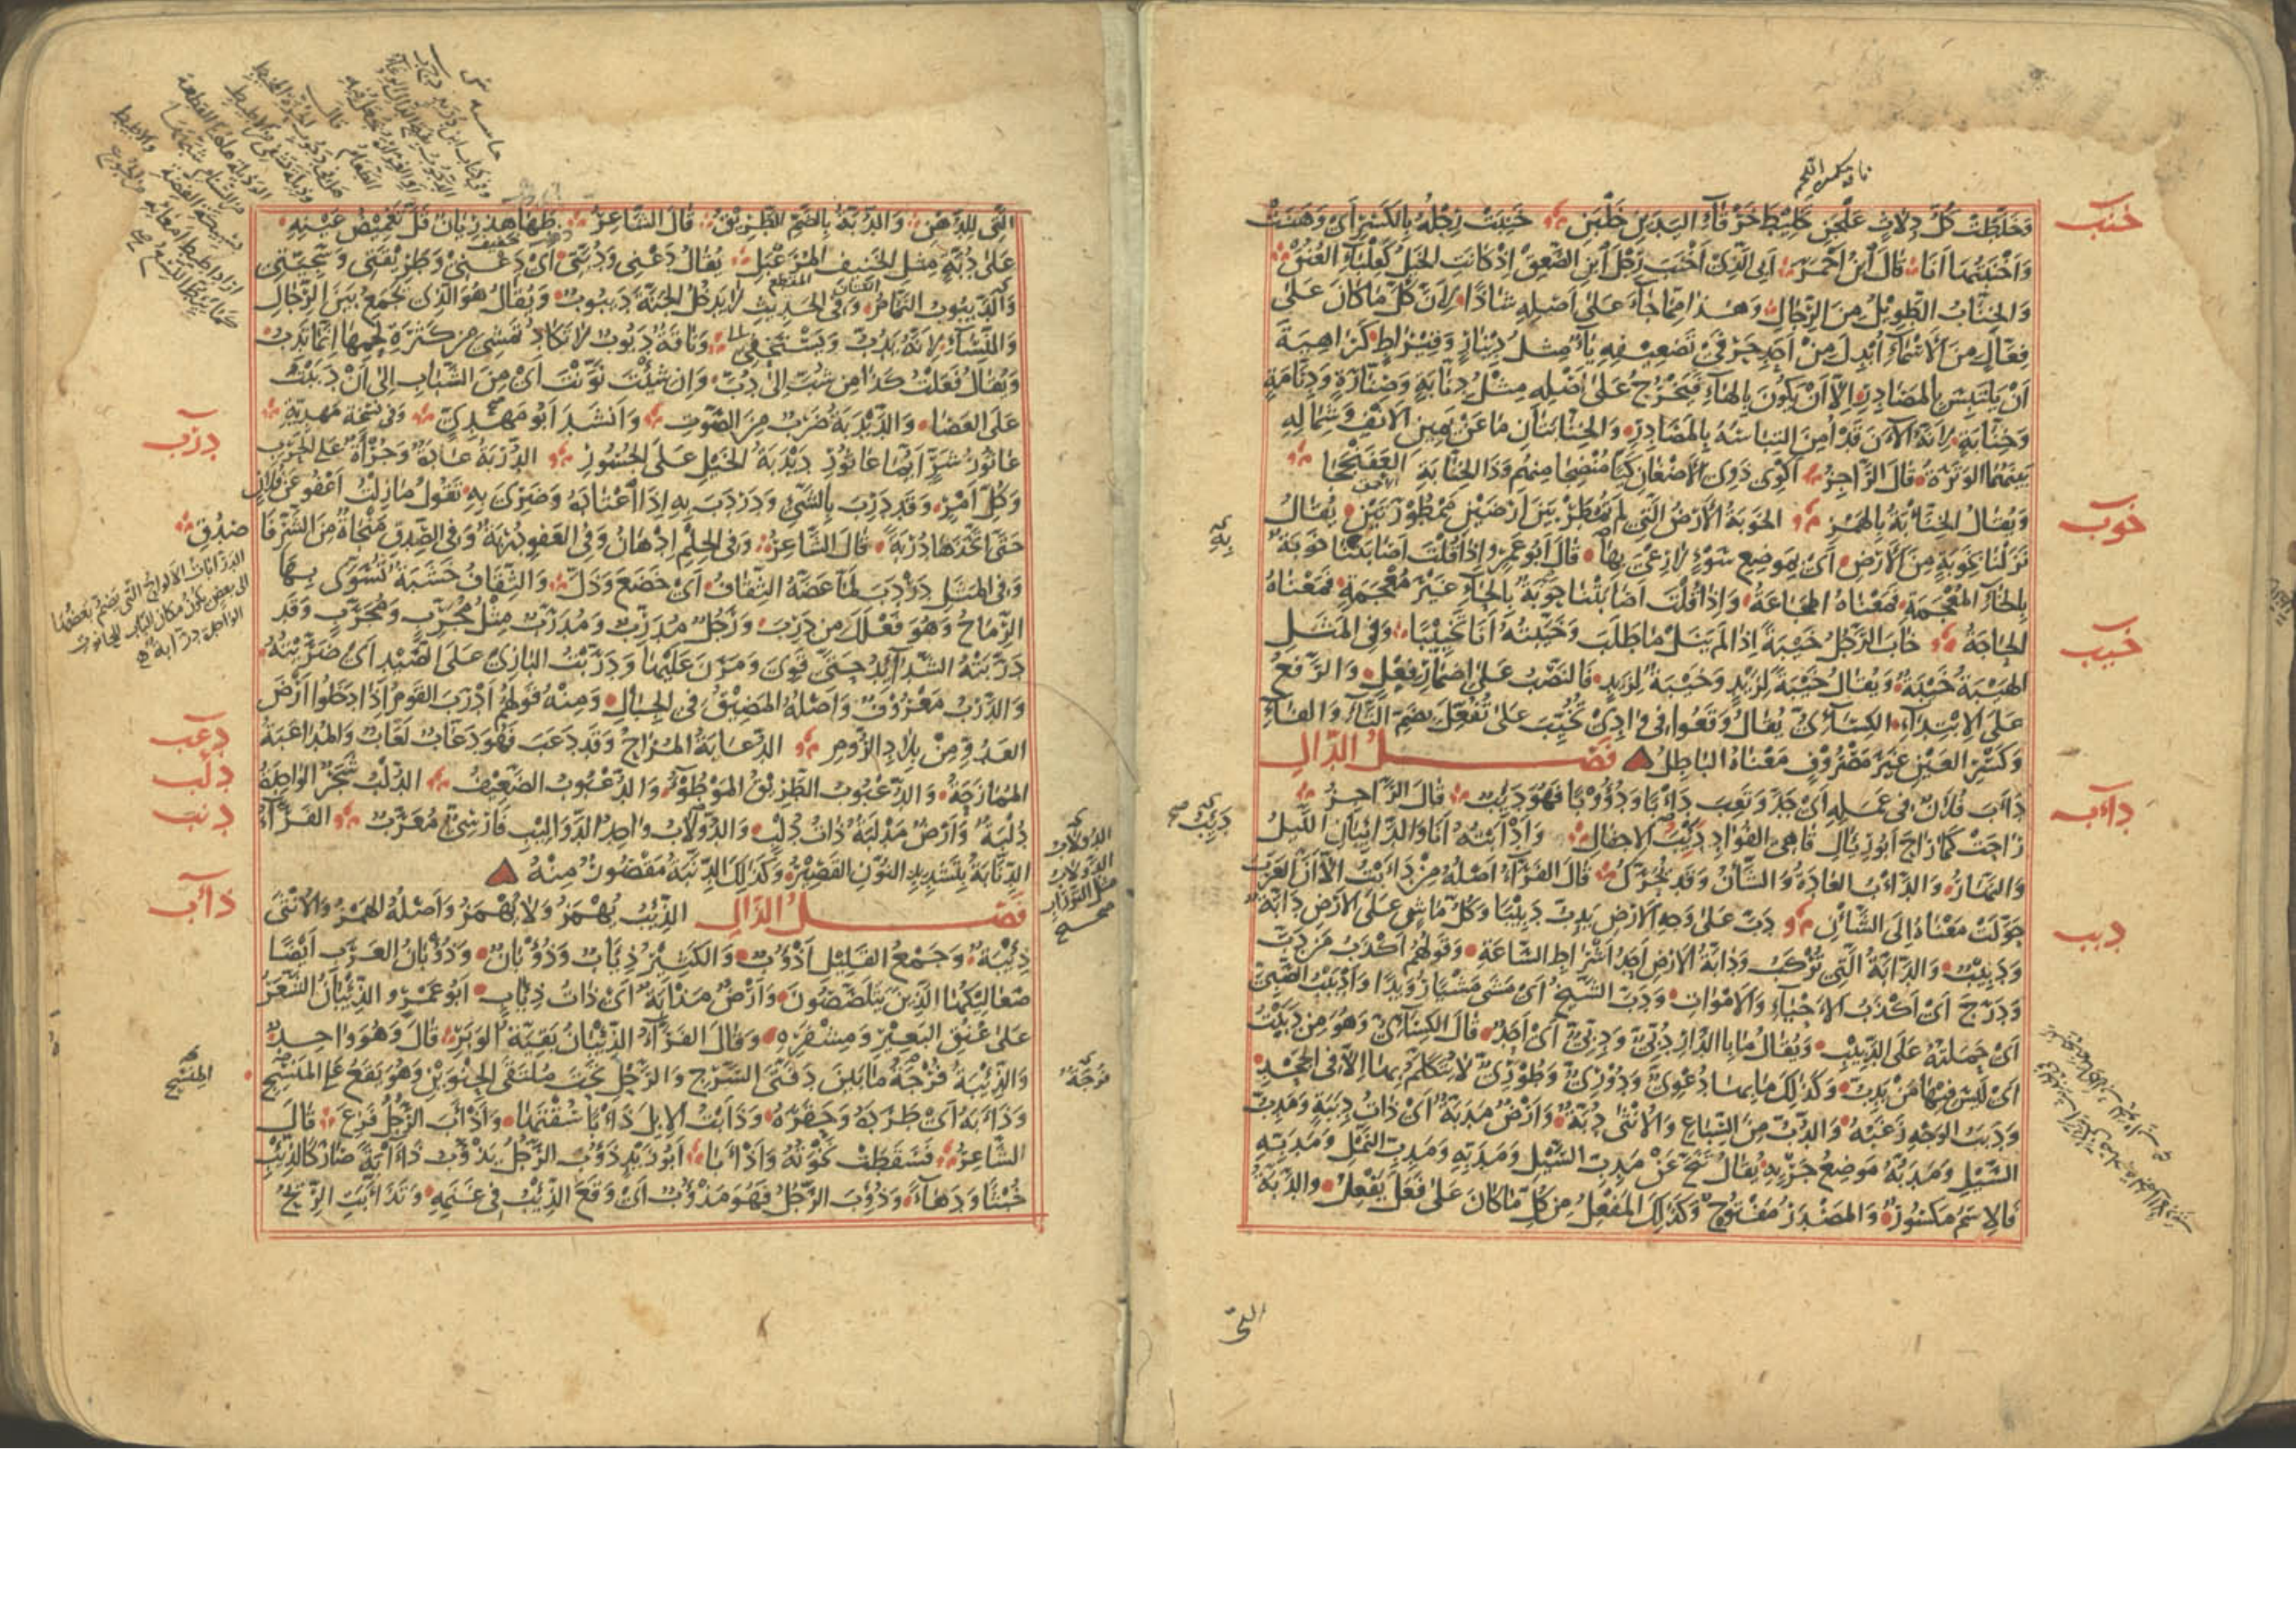 خنب
وَخَلَّطَتْ كُلُّ دِلَاثٍ عَلْجَنِ تَخْلِيطَ خَرْقَاءِ الْيَدَيْنِ خَلْبَنِ خَنِبَتْ رِجْلُهُ بِالْكَسْرِ أَيْ وَهَنَتْ
وَأَخْنَبْتُهَا أَنَا قَالَ ابْنُ أَحْمَرَ أَبِي الَّذِي أَخْنَبَ رِجْلَ ابْنِ الصَّعِقْ إِذْ كَانَتِ الْخَيْلُ كَعِلْبَاءِ الْعُنُقْ
وَالْخِنَّابُ الطَّوِيلُ مِنَ الرِّجَالِ وَهٰذَا مِمَّا جَاءَ عَلَى أَصْلِهِ شَاذًّا لِأَنَّ كُلَّ مَا كَانَ عَلَى
فِعَّالٍ مِنَ الْأَسْمَاءِ أُبْدِلَ مِنْ أَحَدِ حَرْفَيْ تَضْعِيفِهِ يَاءٌ مِثْلُ دِينَارٍ وَقِيرَاطٍ كَرَاهِيَةَ
أَنْ يَلْتَبِسَ بِالْمَصَادِرِ إِلَّا أَنْ يَكُونَ بِالْهَاءِ فَيَخْرُجُ عَلَى أَصْلِهِ مِثْلُ دِنَّابَةٍ وَصِنَّارَةٍ وَدِنَّامَةٍ
وَخِنَّابَةٍ لِأَنَّهُ الْآنَ قَدْ أُمِنَ الْتِبَاسُهُ بِالْمَصَادِرِ وَالْخِنَّابَتَانِ مَا عَنْ يَمِينِ الْأَنْفِ وَشِمَالِهِ
بَيْنَهُمَا الْوَتَرَةُ قَالَ الرَّاجِزُ أَكْوِي ذَوِي الْأَضْغَانِ كَيًّا مُنْضِجَا مِنْهُمْ وَذَا الْخِنَّابَةِ الْعَفَنْجَجَا
خوب
وَيُقَالُ الْخِنَّأْبَةُ بِالْهَمْزِ الْخَوْبَةُ الْأَرْضُ الَّتِي لَمْ تُمْطَرْ بَيْنَ أَرْضَيْنِ مَمْطُورَتَيْنِ يُقَالُ
نَزَلْنَا بِخَوْبَةٍ مِنَ الْأَرْضِ أَيْ بِمَوْضِعِ سَوْءٍ لَا رِعْيَ بِهَا قَالَ أَبُو عَمْرٍو إِذَا قُلْتَ أَصَابَتْنَا خَوْبَةٌ
بِالْخَاءِ الْمُعْجَمَةِ فَمَعْنَاهُ الْمَجَاعَةُ وَإِذَا قُلْتَ أَصَابَتْنَا حَوْبَةٌ بِالْحَاءِ غَيْرَ مُعْجَمَةٍ فَمَعْنَاهُ
خيب
الْحَاجَةُ خَابَ الرَّجُلُ خَيْبَةً إِذَا لَمْ يَنَلْ مَا طَلَبَ وَخَيَّبْتُهُ أَنَا تَخْيِيبًا وَفِي الْمَثَلِ
الْهَيْبَةُ خَيْبَةٌ وَيُقَالُ خَيْبَةً لِزَيْدٍ وَخَيْبَةٌ لِزَيْدٍ فَالنَّصْبُ عَلَى إِضْمَارِ فِعْلٍ وَالرَّفْعُ
عَلَى الِابْتِدَاءِ الْكِسَائِيُّ يُقَالُ وَقَعُوا فِي وَادِي تُخُيِّبَ عَلَى تُفُعِّلَ بِضَمِّ التَّاءِ وَالْفَاءِ
وَكَسْرِ الْعَيْنِ غَيْرَ مَصْرُوفٍ مَعْنَاهُ الْبَاطِلُ فَصْلُ الدَّالِ
دأب
دَأَبَ فُلَانٌ فِي عَمَلِهِ أَيْ جَدَّ وَتَعِبَ دَأْبًا وَدُؤُوبًا فَهُوَ دَئِبٌ قَالَ الرَّاجِزُ
رَاحَتْ كَمَا رَاحَ أَبُو رِئَالِ قَاهِي الْفُؤَادِ دَئِبُ الْإِجْفَالِ وَأَدْأَبْتُهُ أَنَا وَالدَّائِبَانِ اللَّيْلُ
وَالنَّهَارُ وَالدَّأْبُ الْعَادَةُ وَالشَّأْنُ وَقَدْ يُحَرَّكُ قَالَ الْفَرَّاءُ أَصْلُهُ مِنْ دَأَبْتُ إِلَّا أَنَّ الْعَرَبَ
دبب
حَوَّلَتْ مَعْنَاهُ إِلَى الشَّأْنِ دَبَّ عَلَى وَجْهِ الْأَرْضِ يَدِبُّ دَبِيبًا وَكُلُّ مَاشٍ عَلَى الْأَرْضِ دَابَّةٌ
وَدَبِيبٌ وَالدَّابَّةُ الَّتِي تُرْكَبُ وَدَابَّةُ الْأَرْضِ أَحَدُ أَشْرَاطِ السَّاعَةِ وَقَوْلُهُمْ أَكْذَبُ مَنْ دَبَّ
وَدَرَجَ أَيْ أَكْذَبُ الْأَحْيَاءِ وَالْأَمْوَاتِ وَدَبَّ الشَّيْخُ أَيْ مَشَى مَشْيًا رُوَيْدًا وَأَدْبَبْتُ الصَّبِيَّ
أَيْ حَمَلْتُهُ عَلَى الدَّبِيبِ وَيُقَالُ مَا بِالدَّارِ دُبِّيٌّ وَدِبِّيٌّ أَيْ أَحَدٌ قَالَ الْكِسَائِيُّ وَهُوَ مِنْ دَبَبْتُ
أَيْ لَيْسَ فِيهَا مَنْ يَدِبُّ وَكَذٰلِكَ مَا بِهَا دُعْوِيٌّ وَدُورِيٌّ وَطُورِيٌّ لَا يُتَكَلَّمُ بِهَا إِلَّا فِي الْجَحْدِ
وَدَبَبُ الْوَجْهِ زَغَبُهُ وَالدُّبُّ مِنَ السِّبَاعِ وَالْأُنْثَى دُبَّةٌ وَأَرْضٌ مَدَبَّةٌ أَيْ ذَاتُ دِبَبَةٍ وَمَدَبُّ
السَّيْلِ وَمَدِبُّهُ مَوْضِعُ جَرْيِهِ يُقَالُ تَنَحَّ عَنْ مَدَبِّ السَّيْلِ وَمَدِبِّهِ وَمَدَبِّ النَّمْلِ وَمَدِبِّهِ
فَالِاسْمُ مَكْسُورٌ وَالْمَصْدَرُ مَفْتُوحٌ وَكَذٰلِكَ الْمَفْعِلُ مِنْ كُلِّ مَا كَانَ عَلَى فَعَلَ يَفْعِلُ وَالدَّبَّةُ
الَّتِي
الَّتِي لِلدُّهْنِ وَالدُّبَّةُ بِالضَّمِّ الطَّرِيقُ قَالَ الشَّاعِرُ طَهَا هِذْرِيَانٌ قَلَّ تَغْمِيضُ عَيْنِهِ
عَلَى دُبَّةٍ مِثْلِ الْخَنِيفِ الْمُرَعْبَلِ يُقَالُ دَعْنِي وَدُبَّتِي أَيْ دَعْنِي وَطَرِيقَتِي وَسَجِيَّتِي
وَالدَّيْبُوبُ النَّمَّامُ وَفِي الْحَدِيثِ لَا يَدْخُلُ الْجَنَّةَ دَيْبُوبٌ وَيُقَالُ هُوَ الَّذِي يَجْمَعُ بَيْنَ الرِّجَالِ
وَالنِّسَاءِ لِأَنَّهُ يَدِبُّ وَيَسْتَخْفِي وَنَاقَةٌ دَبُوبٌ لَا تَكَادُ تَمْشِي مِنْ كَثْرَةِ لَحْمِهَا إِنَّمَا تَدِبُّ
وَيُقَالُ فَعَلْتُ كَذَا مِنْ شُبَّ إِلَى دُبَّ وَإِنْ شِئْتَ نَوَّنْتَ أَيْ مِنَ الشَّبَابِ إِلَى أَنْ دَبَبْتُ
عَلَى الْعَصَا وَالدَّبْدَبَةُ ضَرْبٌ مِنَ الصَّوْتِ وَأَنْشَدَ أَبُو مَهْدِيٍّ وَفِي نُسْخَةٍ مَهْدِيَّةٍ
درب
عَاثُورُ شَرٍّ أَيُّمَا عَاثُورِ دَبْدَبَةُ الْخَيْلِ عَلَى الْجُسُورِ الدُّرْبَةُ عَادَةٌ وَجُرْأَةٌ عَلَى الْحَرْبِ
وَكُلِّ أَمْرٍ وَقَدْ دَرِبَ بِالشَّيْءِ وَدَرْدَبَ بِهِ إِذَا اعْتَادَهُ وَضَرِيَ بِهِ تَقُولُ مَا زِلْتُ أَعْفُو عَنْ فُلَانٍ
حَتَّى اتَّخَذَهَا دُرْبَةً قَالَ الشَّاعِرُ وَفِي الْحِلْمِ إِدْهَانٌ وَفِي الْعَفْوِ دُرْبَةٌ وَفِي الصِّدْقِ مَنْجَاةٌ مِنَ الشَّرِّ فَاصْدُقِ
وَفِي الْمَثَلِ دَرْدَبَ لَمَّا عَضَّهُ الثِّقَافُ أَيْ خَضَعَ وَذَلَّ وَالثِّقَافُ خَشَبَةٌ تُسَوَّى بِهَا
الرِّمَاحُ وَهُوَ فَعْلَلَ مِنْ دَرِبَ وَرَجُلٌ مُدَرَّبٌ وَمُدَرِّبٌ مِثْلُ مُجَرَّبٍ وَمُجَرِّبٍ وَقَدْ
دَرَّبَتْهُ الشَّدَائِدُ حَتَّى قَوِيَ وَمَرَنَ عَلَيْهَا وَدَرَّبْتُ الْبَازِيَ عَلَى الصَّيْدِ أَيْ ضَرَّيْتُهُ
وَالدَّرْبُ مَعْرُوفٌ وَأَصْلُهُ الْمَضِيقُ فِي الْجِبَالِ وَمِنْهُ قَوْلُهُمْ أَدْرَبَ الْقَوْمُ إِذَا دَخَلُوا أَرْضَ
دعب
الْعَدُوِّ مِنْ بِلَادِ الرُّومِ الدُّعَابَةُ الْمُزَاحُ وَقَدْ دَعَبَ فَهُوَ دَعَّابٌ لَعَّابٌ وَالْمُدَاعَبَةُ
دلب
الْمُمَازَحَةُ وَالدُّعْبُوبُ الطَّرِيقُ الْمَوْطُوءُ وَالدُّعْبُوبُ الضَّعِيفُ الدُّلْبُ شَجَرٌ الْوَاحِدَةُ
دنب
دُلْبَةٌ وَأَرْضٌ مَدْلَبَةٌ ذَاتُ دُلْبٍ وَالدُّولَابُ وَاحِدُ الدَّوَالِيبِ فَارْسِيٌّ مُعَرَّبٌ الْفَرَّاءُ
الدِّنَّابَةُ بِتَشْدِيدِ النُّونِ الْقَصِيرُ وَكَذٰلِكَ الدِّنَّبَةُ مَقْصُورٌ مِنْهُ
ذأب
فَصْلُ الذَّالِ الذِّئْبُ يُهْمَزُ وَلَا يُهْمَزُ وَأَصْلُهُ الْهَمْزُ وَالْأُنْثَى
ذِئْبَةٌ وَجَمْعُ الْقَلِيلِ أَذْؤُبٌ وَالْكَثِيرُ ذِئَابٌ وَذُؤْبَانٌ وَذُؤْبَانُ الْعَرَبِ أَيْضًا
صَعَالِيكُهَا الَّذِينَ يَتَلَصَّصُونَ وَأَرْضٌ مَذْأَبَةٌ أَيْ ذَاتُ ذِئَابٍ أَبُو عَمْرٍو الذِّئْبَانُ الشَّعَرُ
عَلَى عُنُقِ الْبَعِيرِ وَمِشْفَرِهِ وَقَالَ الْفَرَّاءُ الذِّئْبَانُ بَقِيَّةُ الْوَبَرِ قَالَ وَهُوَ وَاحِدٌ
وَالذِّئْبَةُ فُرْجَةُ مَا بَيْنَ دَفَّتَيِ السَّرْجِ وَالرَّحْلِ تَحْتَ مُلْتَقَى الْحِنْوَيْنِ وَهُوَ يَقَعُ عَلَى الْمَنْسِجِ
وَذَأَبَهُ أَيْ طَرَدَهُ وَحَقَرَهُ وَذَأَبْتُ الْإِبِلَ ذَأْبًا سُقْتُهَا وَأَذْأَبَ الرَّجُلُ فَزِعَ قَالَ
الشَّاعِرُ فَسَقَطَتْ نَخْوَتُهُ وَأَذْأَبَا أَبُو زَيْدٍ ذَؤُبَ الرَّجُلُ يَذْؤُبُ ذَآبَةً صَارَ كَالذِّئْبِ
خُبْثًا وَدَهَاءً وَذُئِبَ الرَّجُلُ فَهُوَ مَذْؤُوبٌ أَيْ وَقَعَ الذِّئْبُ فِي غَنَمِهِ وَتَذَأَّبَتِ الرِّيحُ